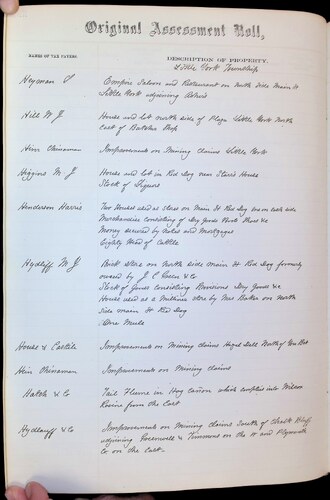 Original Assessment Roll,
NAMES OF TAX PAYERS.
DESCRIPTION OF PROPERTY.
Little York Township
Heyman S
Empire Saloon and Restaurant on North Side Main St
Little York adjoining
Hill W J
House and lot north side of Plaza Little York North
East of Butcher Shop
Hin Chinaman
Improvements on Mining Claims Little York
Higgins M J
House and lot in Red Dog near Odd House
Stock of Liquors
Henderson Harris
Two Houses used as Stores on Main St Red Dog one on each side
Merchandise consisting of Dry Goods Boots Shoes &c
Money secured by notes and mortgages
Eighty Head of Cattle
Hydliff W J
Brick Store on north side main St Red Dog formerly
owned by J C &c
Stock of Goods consisting Provisions Dry Goods &c
House used as a Millinery store by Mrs Baker on North
side main St Red Dog
One Mule
House & Castile
Improvements on Mining claims
Hin Chinaman
Improvements on Mining claims
Hatch & Co
Tail Flume in Hog Cañon which empties into Wilcox
Ravine from the East
Hydlauff & Co
Improvements on Mining claims South of Chalk Bluff
adjoining Greenwell & Timmons on the W and Plymouth
Co on the East.